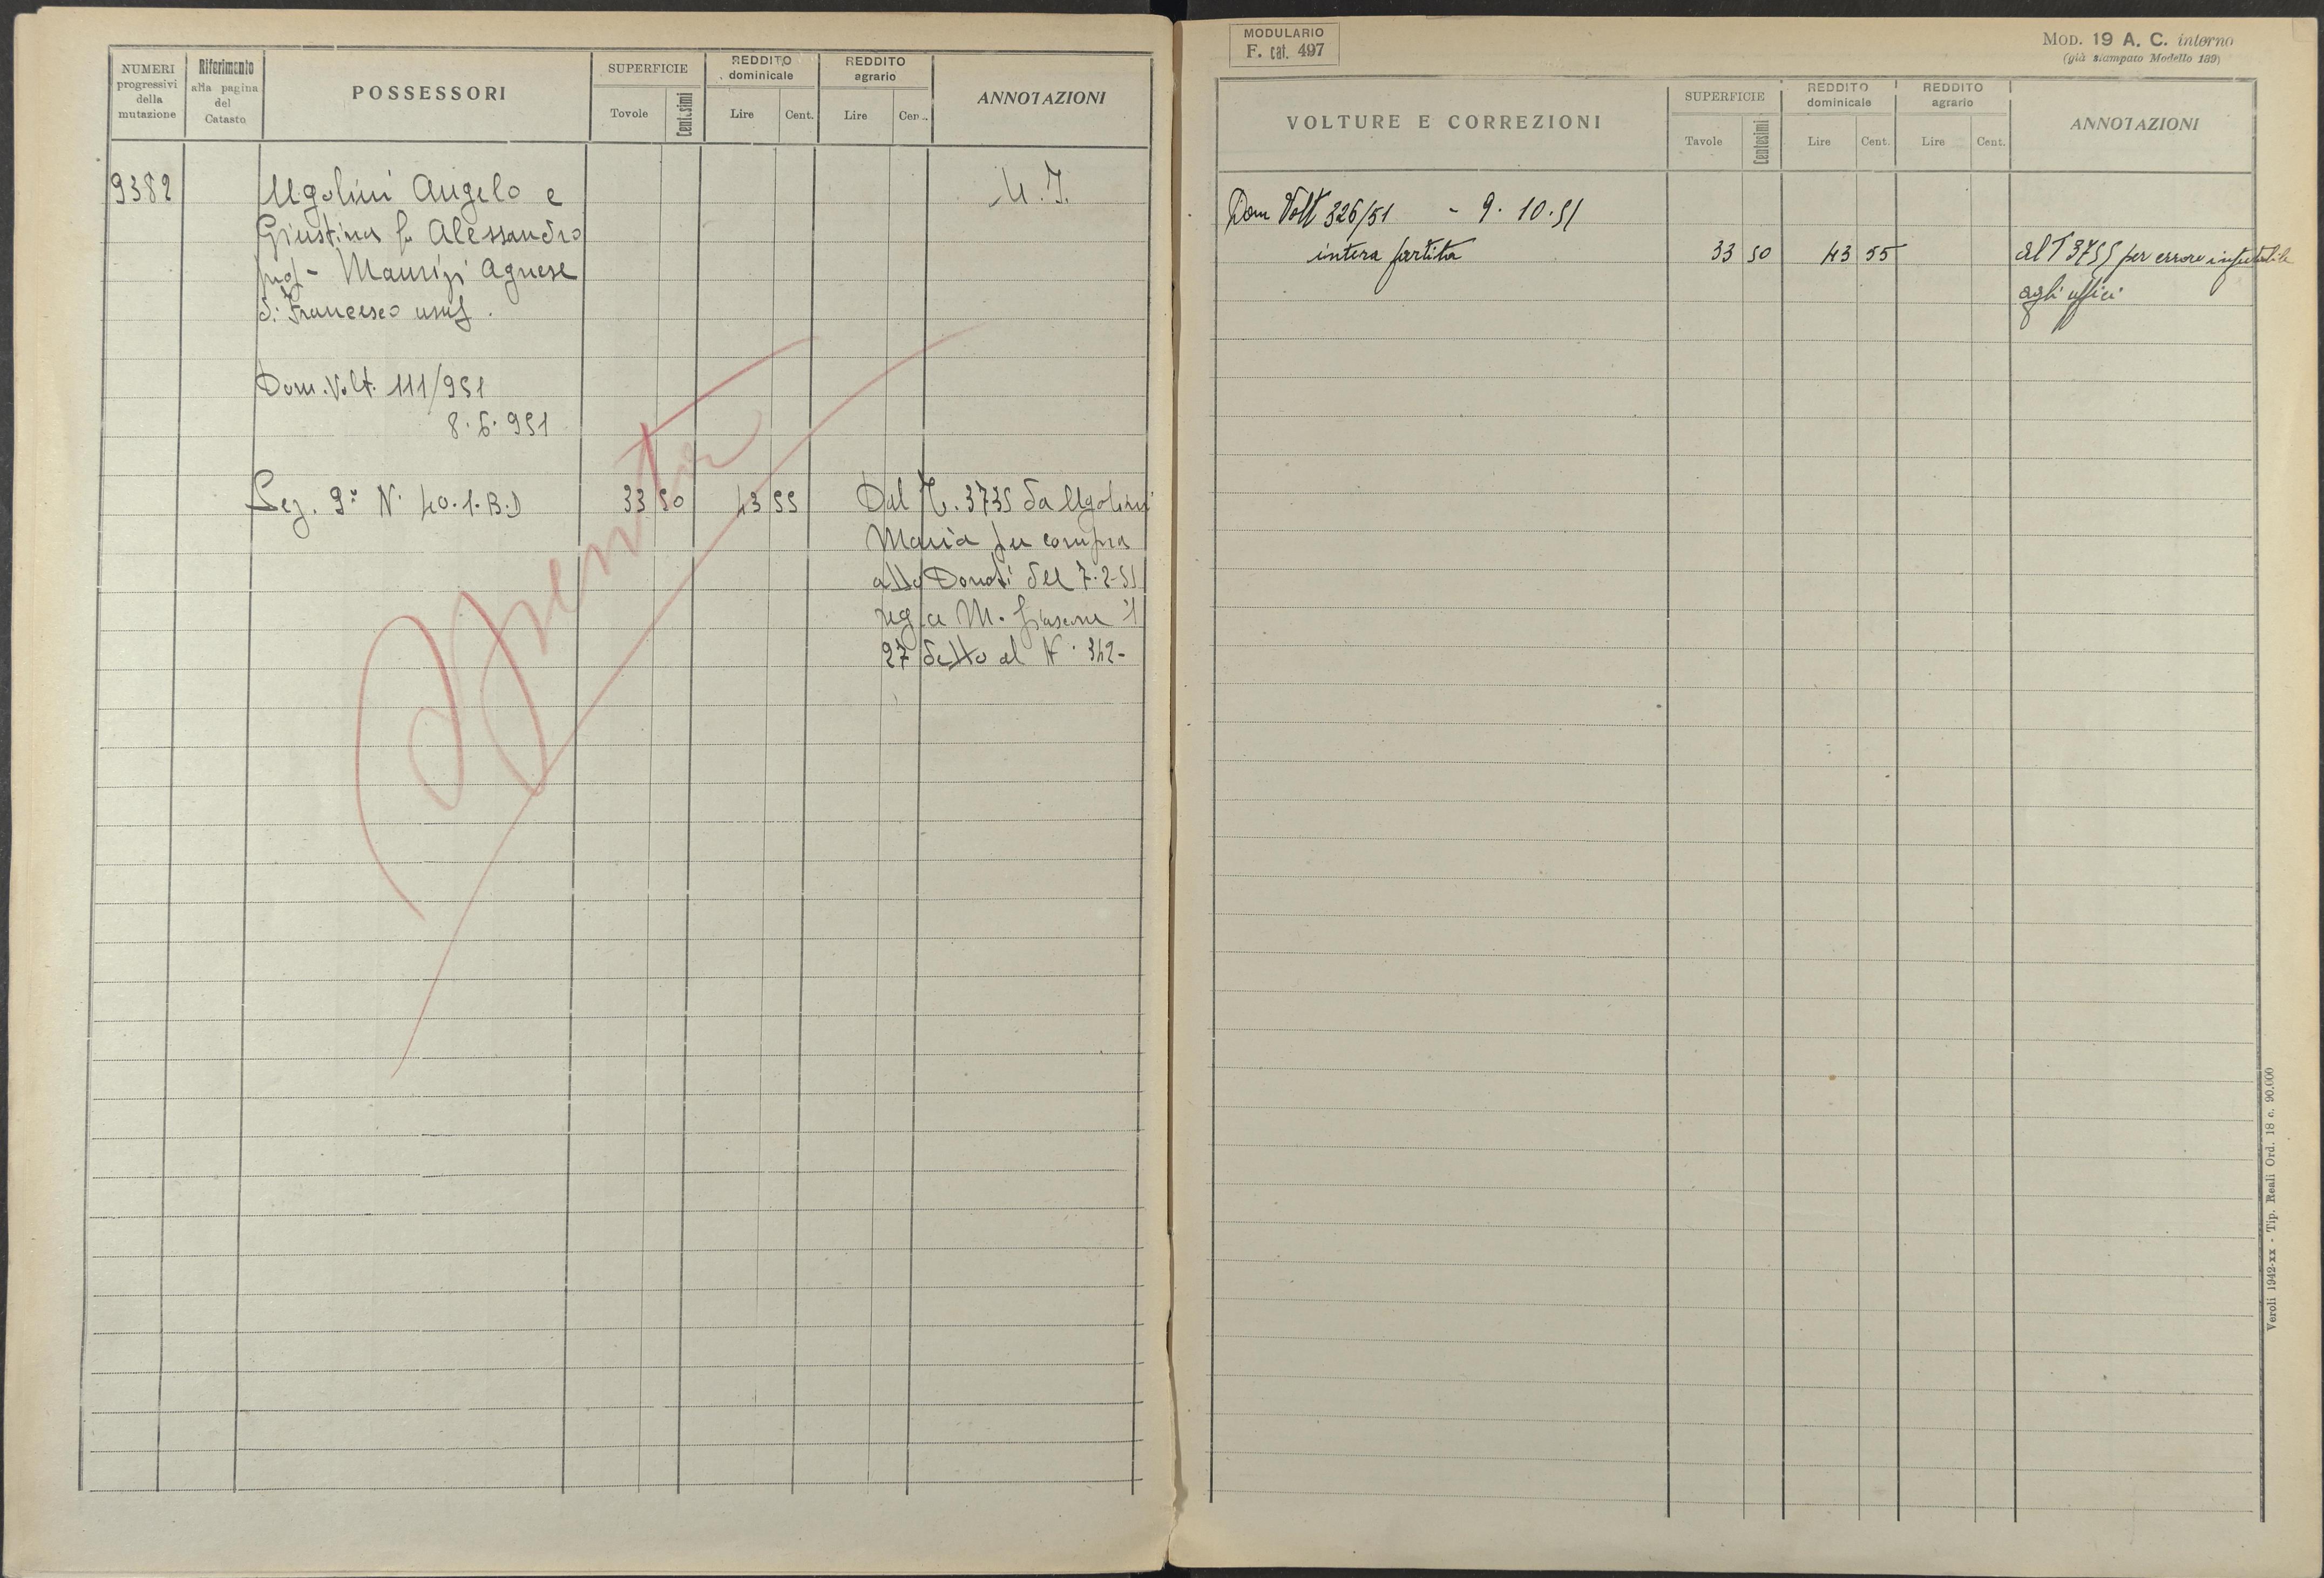 NUMERI progressivi della mutazione
Riferimento alla pagina del Catasto
POSSESSORI
SUPERFICIE
Tavole
Centesimi
REDDITO dominicale
Lire
Cent.
REDDITO agrario
Lire
Cen..
ANNOTAZIONI
9382
Ugolini Angelo e
M. I.
Giustina fu Alessandro
prop- Maurizi Agnese
di Francesco usuf.
Dom. Volt. 111/951
8.6.951
Sez. 9ª N. 40.1.B.D
33 50
43 55
Dal T. 3735 da Ugolini
Maria per compra
atto Donati del 7-2-51
reg a M. Giasone il
27 detto al N. 342-
Spenta
MODULARIO
F. cat. 497
MOD. 19 A. C. interno
(già stampato Modello 189)
VOLTURE E CORREZIONI
SUPERFICIE
Tavole
Centesimi
REDDITO dominicale
Lire
Cent.
REDDITO agrario
Lire
Cent.
ANNOTAZIONI
Dom Volt 326/51 - 9.10.51
intera partita
33 50
43 55
al T 3755 per errore imputabile
agli uffici
Veroli 1942-xx - Tip. Reali Ord. 18 c. 90.000